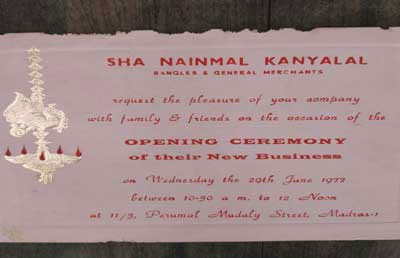 SHA NAINMAL KANYALAL
BANGLES & GENERAL MERCHANTS
request the pleasure of your company
with family & friends on the occasion of the
OPENING CEREMONY
of their New Business
on Wednesday the 29th June 1977
between 10-30 a.m. to 12 Noon
at 11/3, Perumal Mudaly Street, Madras-1